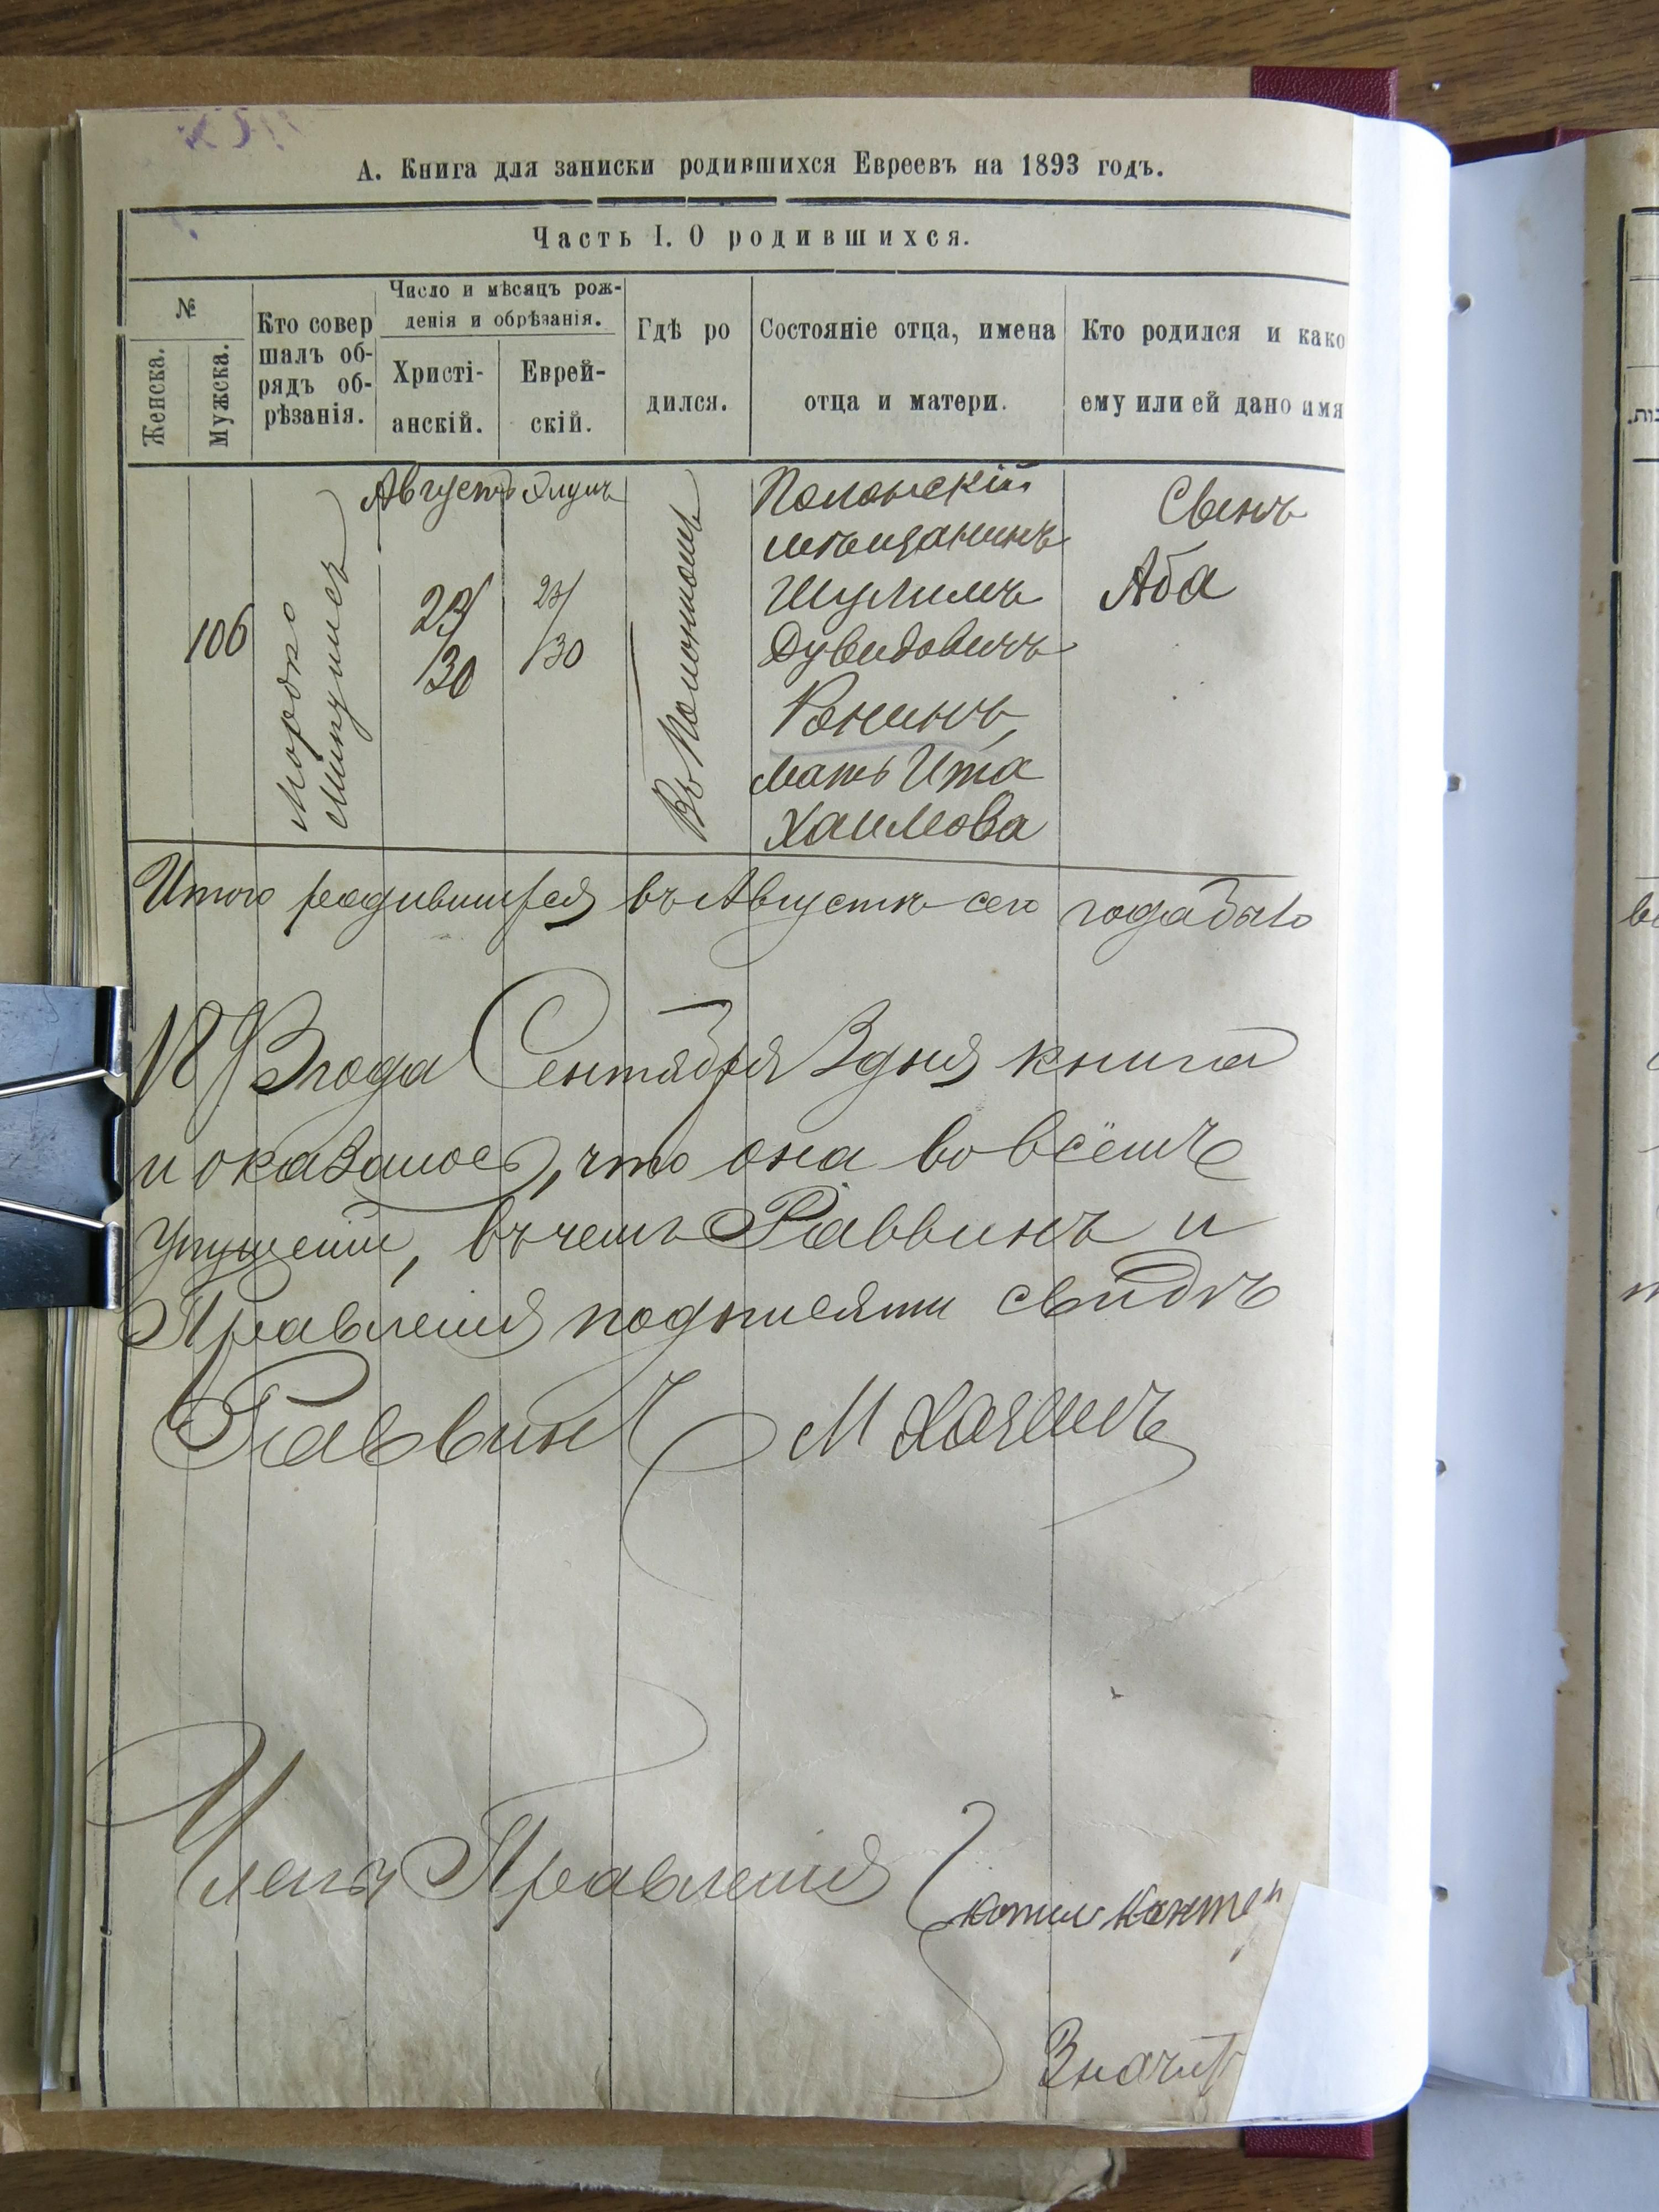 А. Книга для записки родившихся Евреевъ на 1893 годъ.
Часть I. О родившихся.
№
Женска.
Мужска.
Кто совер
шалъ об-
рядъ об-
рѣзанія.
Число и мѣсяцъ рож-
денія и обрѣзанія.
Христі-
анскій.
Еврей-
скій.
Гдѣ ро
дился.
Состояніе отца, имена
отца и матери.
Кто родился и како
ему или ей дано имя
106
Мордко
Августъ
23/
/30
Элулъ
23/
/30
Въ Полонномъ
Полонскій
мѣщанинъ
Шулимъ
Дувидовичъ
Ронинъ,
мать Ита
Хаимова
Сынъ
Аба
Итого родившихся въ Августѣ сего года было
1893 года Сентября 3 дня книга
и оказалось, что она во всёмъ
упущеній, въ чемъ Раввинъ и
Правленія подписями свидѣ
Раввинъ М
Членъ Правленія